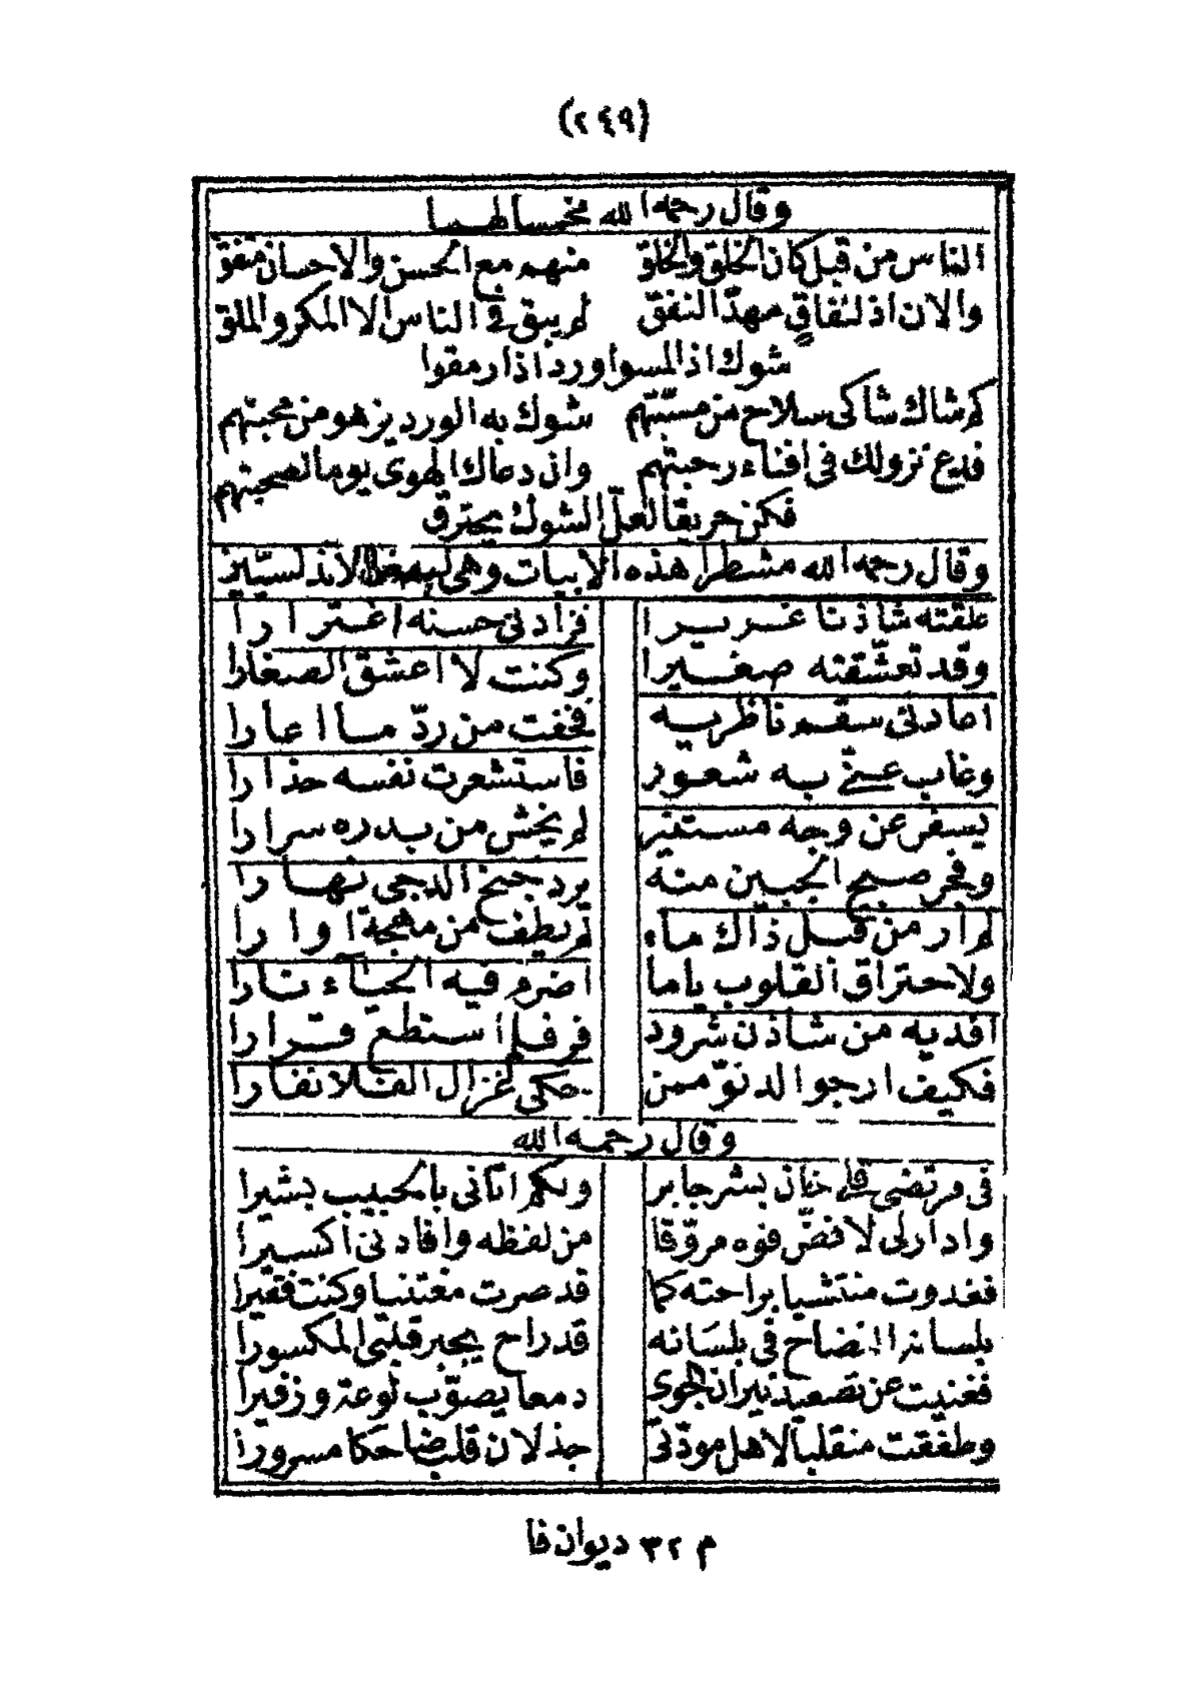 (٢٤٩)
وقال رحمه الله مخمسا لهما
الناس من قبل كان الخلق والخلق منهم مع الحسن والاحسان متفق
والان اذ لنفاق مهد النفق لم يبق في الناس الا المكر والملق
شوك اذ المسوا ورد اذا رمقوا
كم شاك شاكى سلاح من مسبتهم شوك به الورد يزهو من محبتهم
فدع نزولك فى افناء رحبتهم وان دعاك الهوى يوما لصحبتهم
فكن حريقا لعل الشوك يحترق
وقال رحمه الله مشطرا هذه الابيات وهى
علقته شاذنا غريرا فزادنى حسنه اغترارا
وقد تعشقته صغيرا وكنت لا اعشق الصغارا
اعادنى سقم ناظريه فخفت من رد ما اعارا
وغاب عنى به شعور فاستشعرت نفسه حذارا
يسفر عن وجه مستنير لم يخش من بدره سرارا
وفجر صبح الجبين منه يرد جنح الدجى نهارا
لم ار من قبل ذاك ماء لم يطف من مهجة اوارا
ولاحتراق القلوب ياما اضرم فيه الحياء نارا
افديه من شاذن شرود فر فلم استطع قرارا
فكيف ارجوا لدنو ممن حكى غزال الفلا نفارا
وقال رحمه الله
فى مرتضى قلم خان بشر جابر ولكم اتانى بالحبيب بشيرا
وادار لى لا فض فوه مروقا من لفظه وافادنى اكسيرا
فغدوت منتشيا براحته كما قد صرت مغتنيا وكنت فقيرا
بلسانه النضاح فى بلسانه قد راح يجبر قلبى المكسورا
فغنيت عن تصعيد نيران الجوى دمعا يصوب لوعة وزفيرا
وطفقت منقلبا لاهل مودتى جذلان قلب ضاحكا مسرورا
م ٣٢ ديوان فا